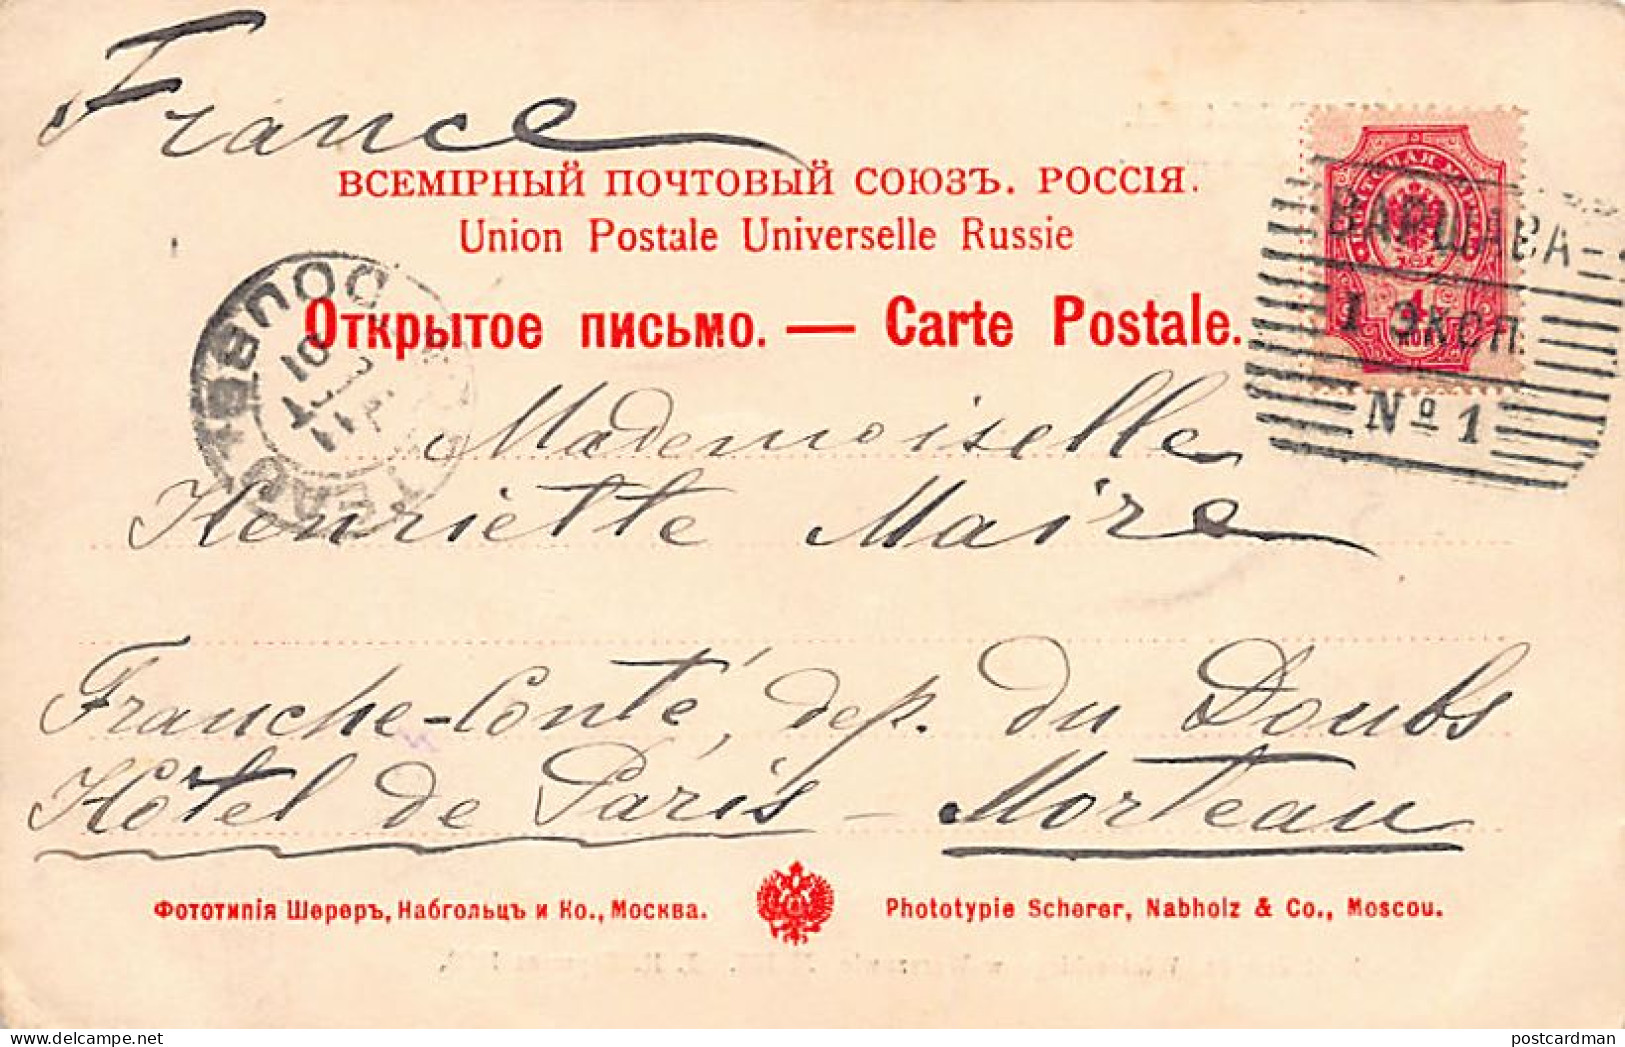 France
ВСЕМІРНЫЙ ПОЧТОВЫЙ СОЮЗЪ. РОССІЯ.
Union Postale Universelle Russie
Открытое письмо. — Carte Postale.
ВАРШАВА-
1 ЭКСП.
№ 1
4
КОП
DOUBS
01
Mademoiselle
Henriette Maire
Franche-Conté, dep. du Doubs
Hôtel de Paris - Morteau
Фототипія Шереръ, Набгольцъ и Ко., Москва.
Phototypie Scherer, Nabholz & Co., Moscou.
postcardman